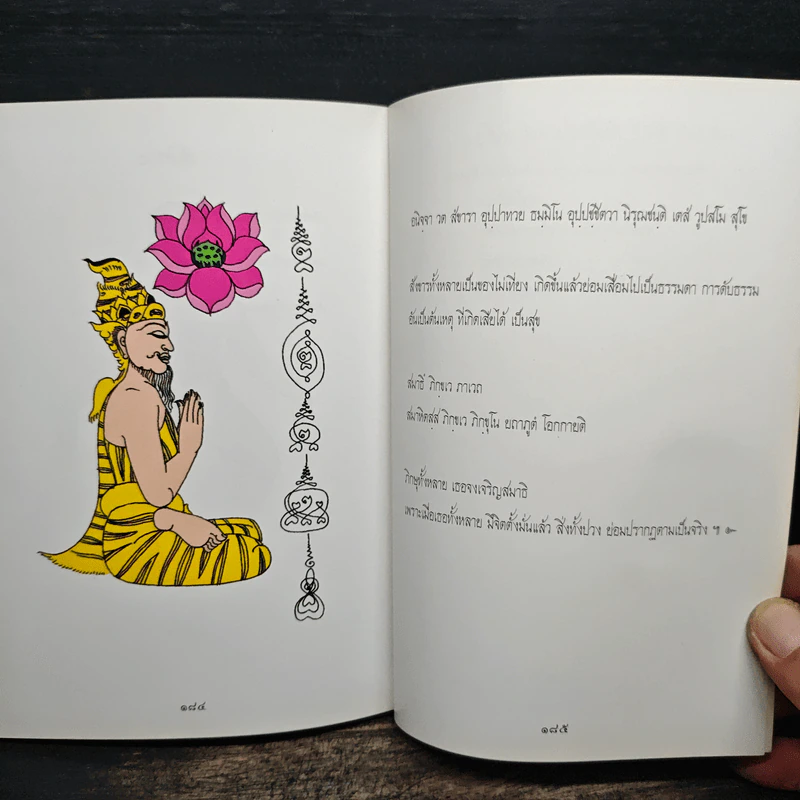 ๑๘๔
อนิจฺจา วต สังารา อุปฺปาทวย ธมฺมิโน อุปฺปชฺชิตวา นิรุณชนฺติ เตสํ วูปสโม สุโข
สังขารทั้งหลายเป็นของไม่เที่ยง เกิดขึ้นแล้วย่อมเสื่อมไปเป็นธรรมดา การดับธรรม
อันเป็นต้นเหตุ ที่เกิดเสียได้ เป็นสุข
สมาธึ ภิกฺขเว ภาเวถ
สมาหิตสฺส ภิกฺขเว ภิกฺขุโน ยถาภูตํ โอกฺกายติ
ภิกษุทั้งหลาย เธอจงเจริญสมาธิ
เพราะเมื่อเธอทั้งหลาย มีจิตตั้งมั่นแล้ว สิ่งทั้งปวง ย่อมปรากฏตามเป็นจริง ฯ ๛
๑๘๕